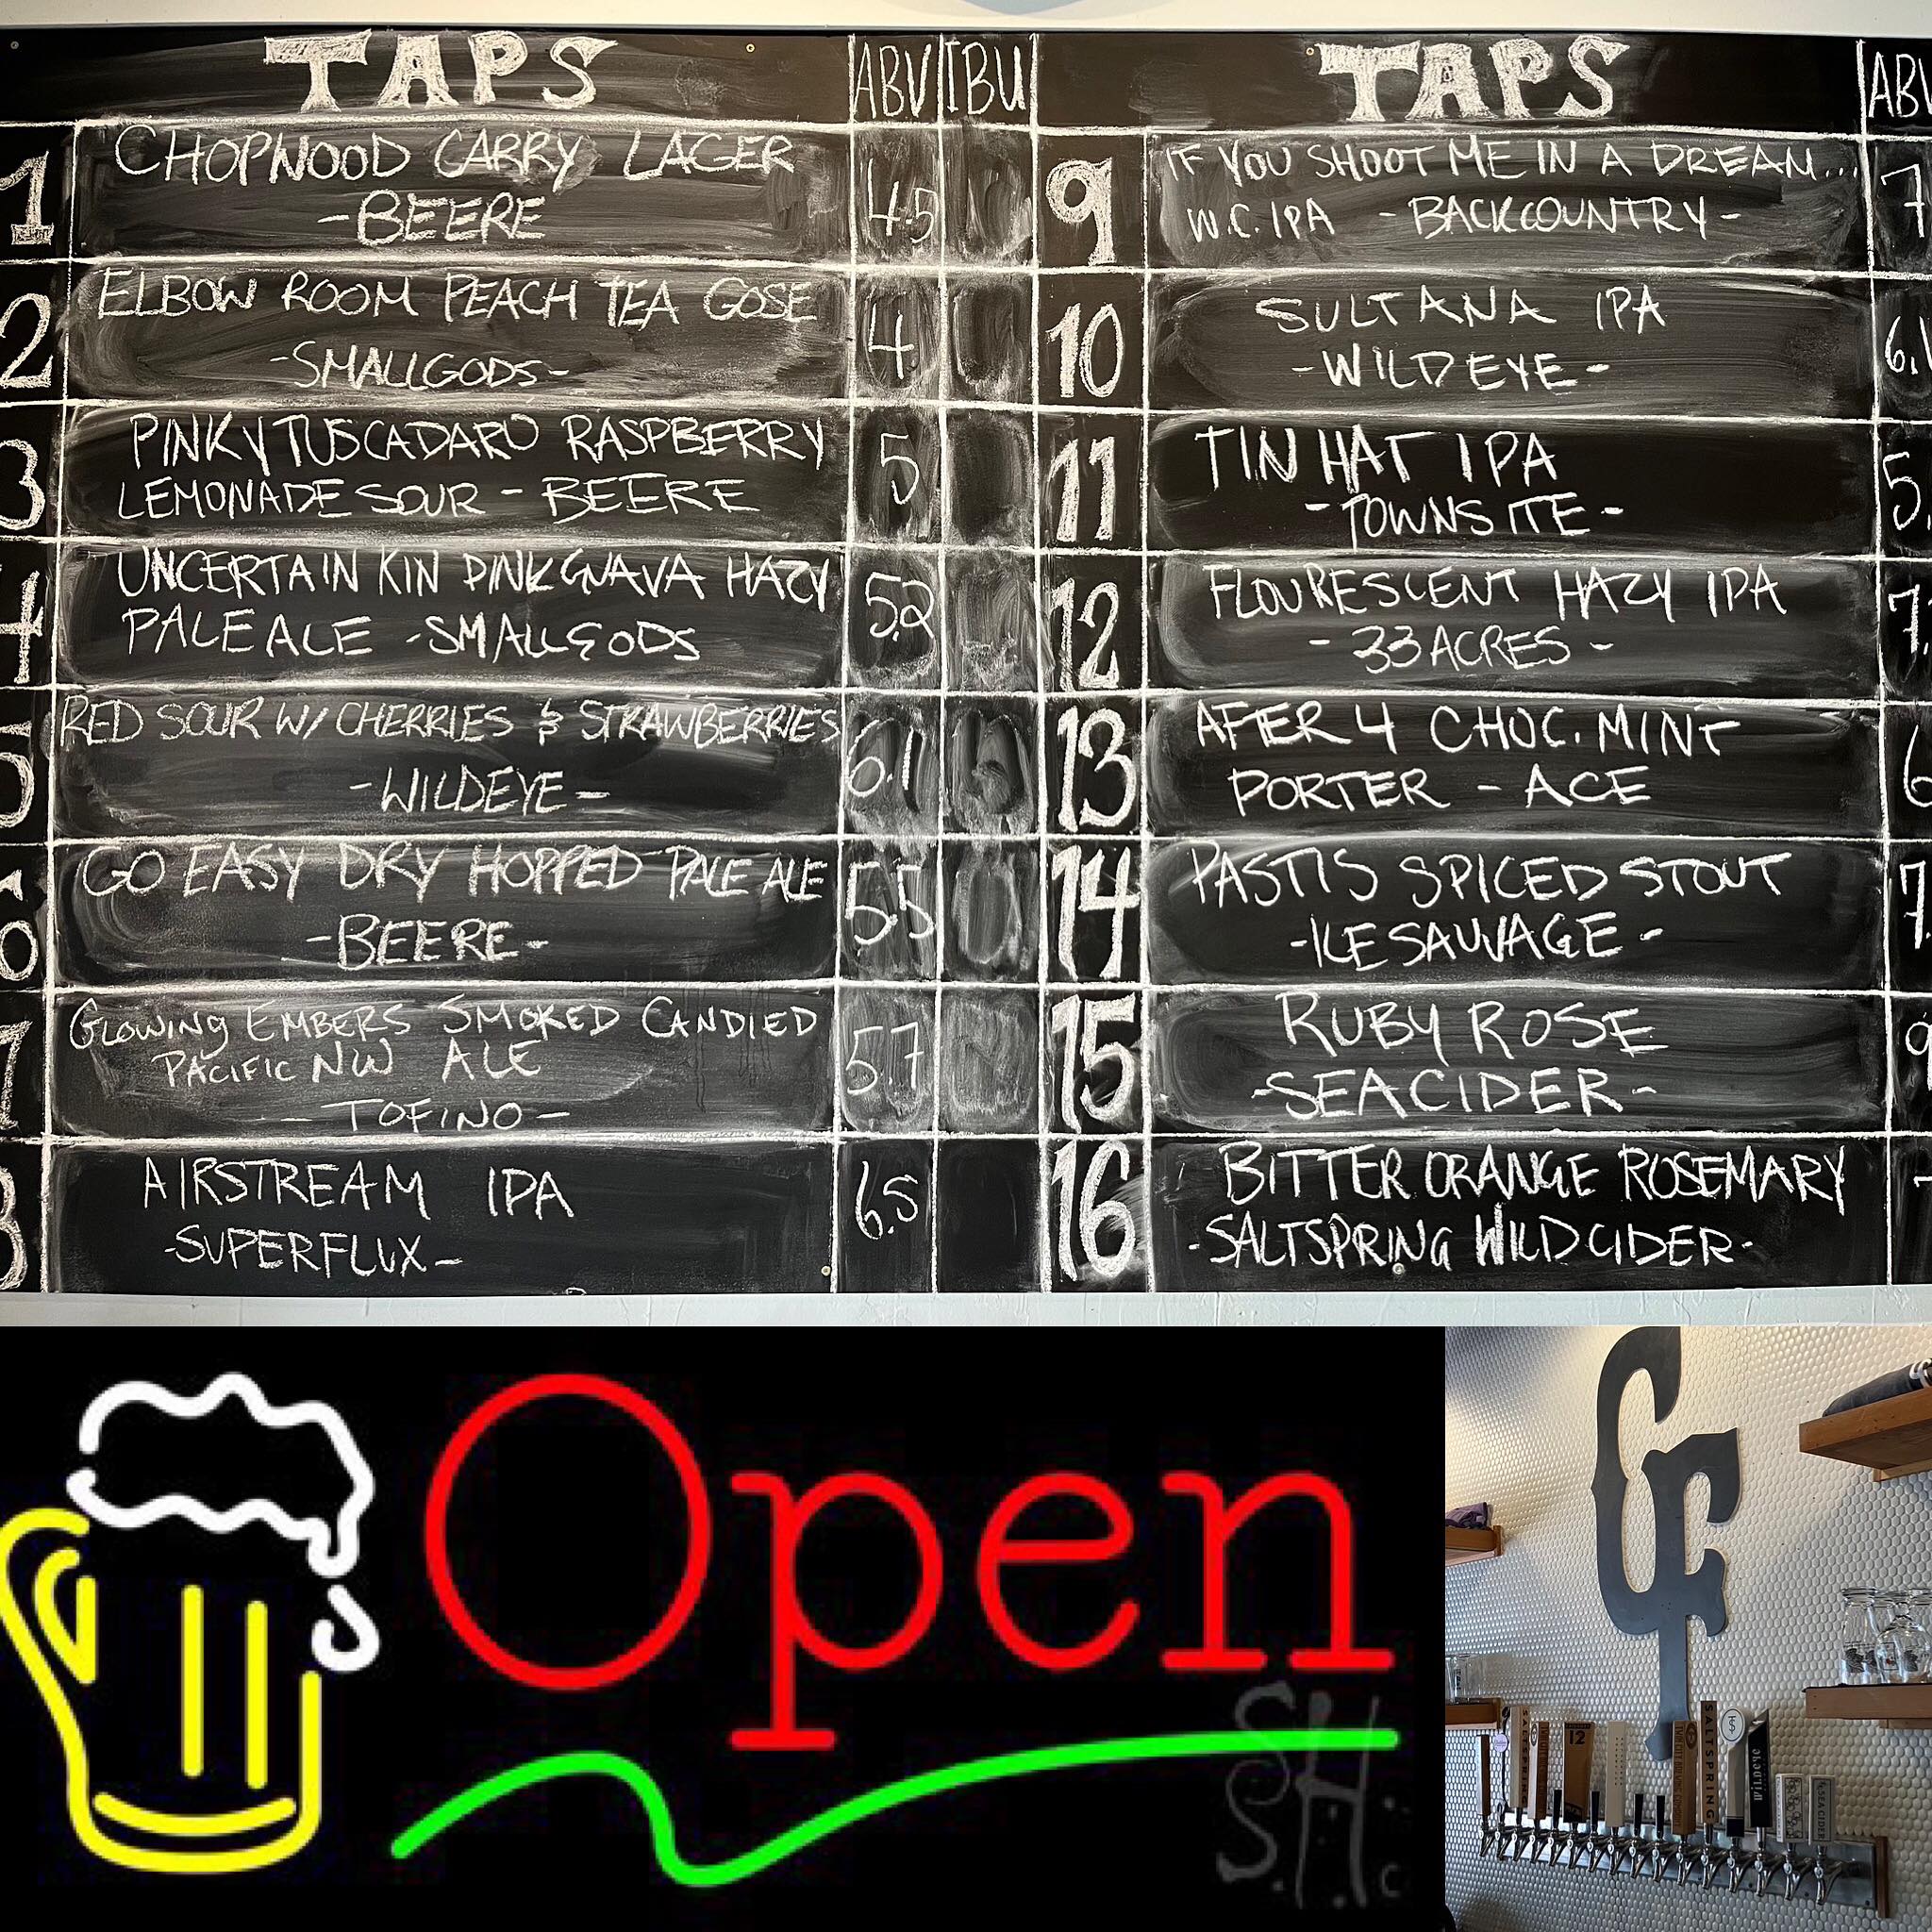 TAPS ABV IBU
1 CHOPWOOD CARRY LAGER
-BEERE 4.5
2 ELBOW ROOM PEACH TEA GOSE
-SMALLGODS- 4
3 PINKY TUSCADARO RASPBERRY 5
LEMONADE SOUR - BEERE
4 UNCERTAIN KIN PINK GUAVA HAZY 5.2
PALE ALE -SMALLGODS
5 RED SOUR W/ CHERRIES & STRAWBERRIES 6.1
-WILDEYE-
6 GO EASY DRY HOPPED PALE ALE 5.5
-BEERE-
7 GLOWING EMBERS SMOKED CANDIED
PACIFIC NW ALE 5.7
-TOFINO-
8 AIRSTREAM IPA 6.5
-SUPERFLUX-
TAPS ABV
9 IF YOU SHOOT ME IN A DREAM... 7
W.C. IPA - BACKCOUNTRY -
10 SULTANA IPA 6.1
-WILDEYE-
11 TIN HAT IPA 5.
-TOWNSITE-
12 FLOURESCENT HAZY IPA 7.
- 33 ACRES -
13 AFTER 4 CHOC. MINT 6
PORTER - ACE
14 PASTIS SPICED STOUT 7.
-ILE SAUVAGE-
15 RUBY ROSE 9
-SEACIDER-
16 BITTER ORANGE ROSEMARY
-SALTSPRING WILD CIDER-
Open
S.H.
S.H.c
CF
SALTSPRING
12
SALTSPRING
WILDEYE
SEA CIDER